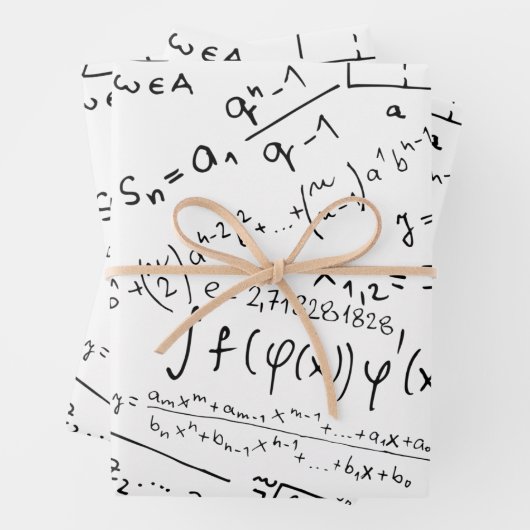 ω∈A
ω∈A
qⁿ-1
Sₙ = a₁ q-1
a
a¹ bⁿ⁻¹
aⁿ⁻² b² + ... +
y =
e = 2,718281828
x₁,₂ =
∫ f(φ(x))φ'(x
y =
y = aₘxᵐ+aₘ₋₁xᵐ⁻¹+...+a₁x+a₀
bₙxⁿ+bₙ₋₁xⁿ⁻¹+...+b₁x+b₀